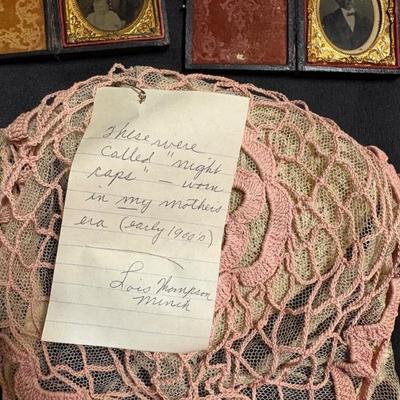 These were
called "night
caps" — worn
in my mothers
era (early 1900's)
Lois Thompson
Minch